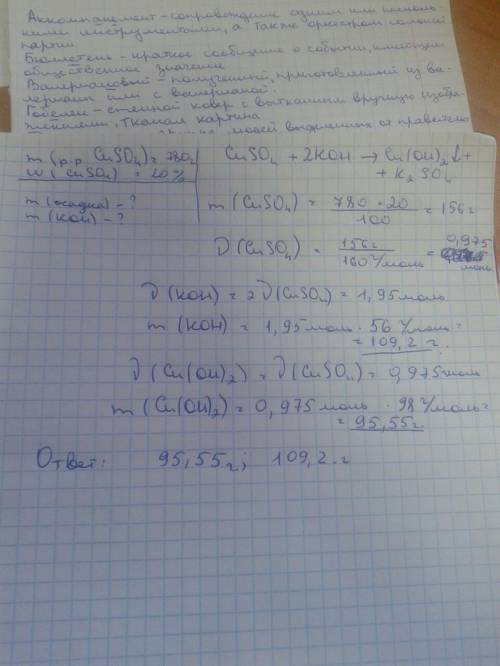 Аккомпанемент - сопровождение одним или несколь-
кими инструментами, а также оркестром сольной
партии
Бюллетень - краткое сообщение о событии, имеющем
общественное значение
Валериановый - полученный, приготовленный из ва-
лерианы или с валерианой.
Гобелен - стенной ковёр с вытканным вручную изобра-
жениями, тканая картина
людей выделенных от правительст
m (р-р CuSO4) = 780г
ω (CuSO4) = 20%
m (осадка) - ?
m (KOH) - ?
CuSO4 + 2KOH → Cu(OH)2↓ +
+ K2SO4
m (CuSO4) = 780 · 20 / 100 = 156г
ν (CuSO4) = 156г / 160 г/моль = 0,975 моль
ν (KOH) = 2ν(CuSO4) = 1,95 моль
m (KOH) = 1,95 моль · 56 г/моль =
= 109,2 г.
ν (Cu(OH)2) = ν (CuSO4) = 0,975 моль
m (Cu(OH)2) = 0,975 моль · 98 г/моль =
= 95,55г
Ответ: 95,55г; 109,2 г